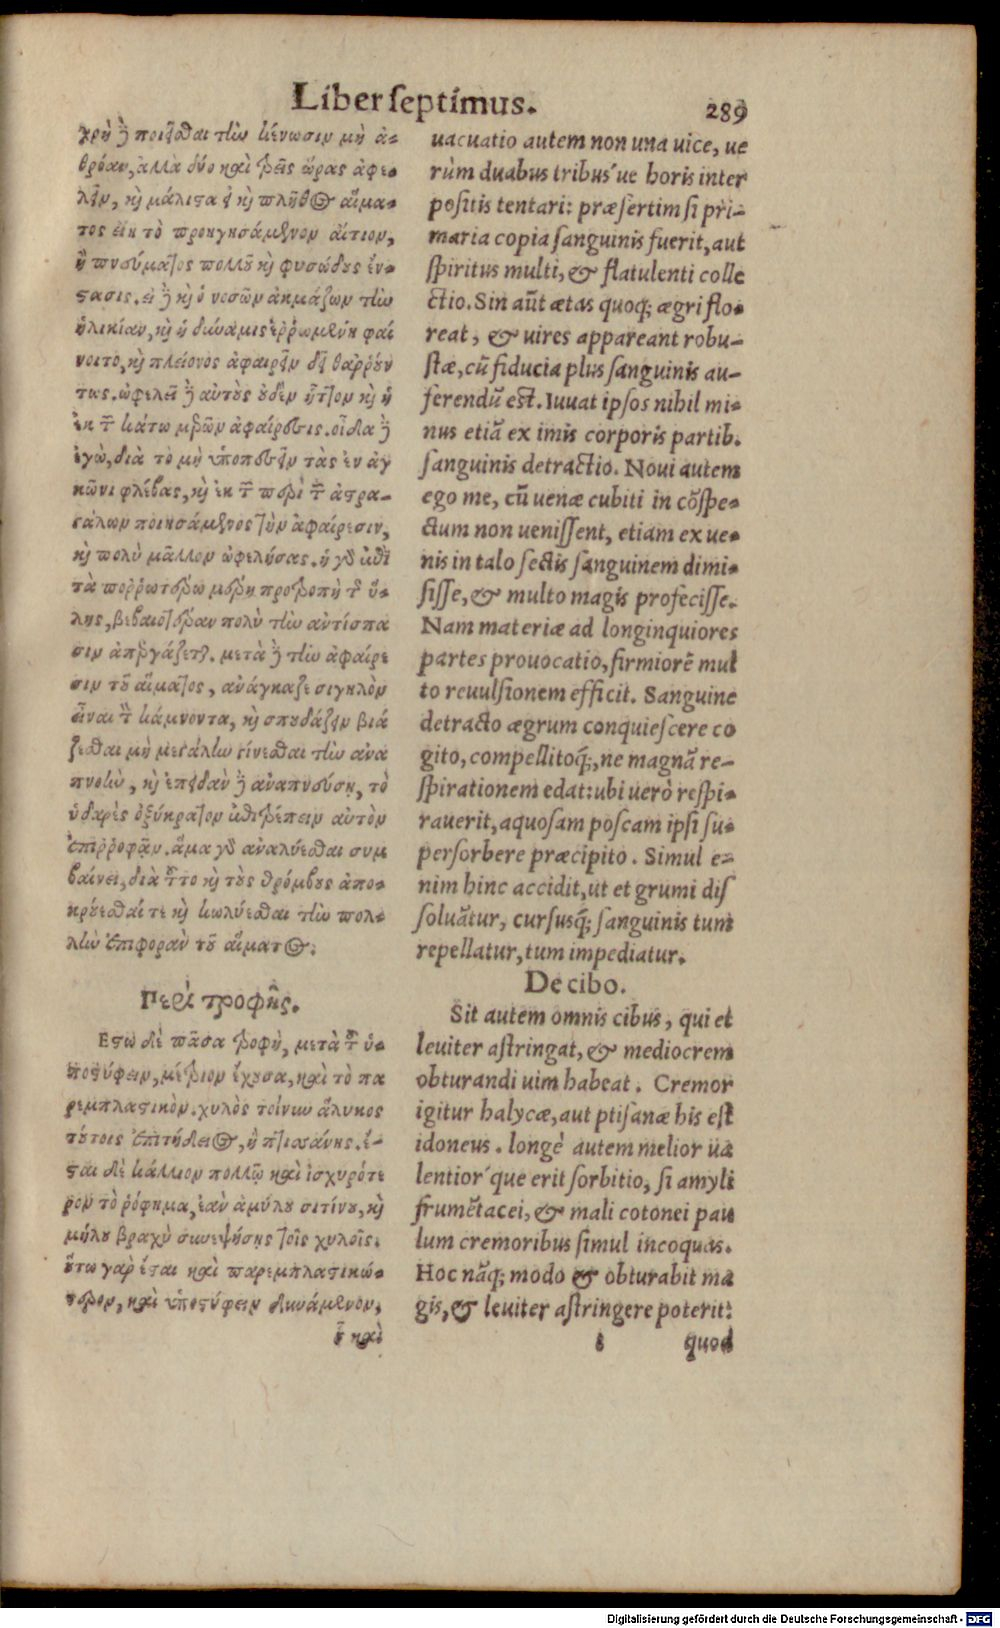 Liber septimus. 289
χρὴ δὲ ποιεῖσθαι τὴν κένωσιν μὴ ἀ-
θρόαν, ἀλλὰ δύο καὶ τρεῖς ὥρας ἀφε-
λεῖν, καὶ μάλιστα εἰ καὶ πλῆθος αἵμα-
τος εἴη τὸ προηγησάμενον αἴτιον,
ἢ πνεύματος πολλοῦ καὶ φυσώδους ἔν-
στασις. εἰ δὲ καὶ ὁ νοσῶν ἀκμάζων τὴν
ἡλικίαν, καὶ ἡ δύναμις ἐῤῥωμένη φαί
νοιτο, καὶ πλείονος ἀφαιρεῖν δεῖ θαῤῥούν
τως. ὠφελεῖ δὲ αὐτοὺς οὐδὲν ἧττον καὶ ἡ
ἐκ τῶν κάτω μερῶν ἀφαίρεσις. οἶδα δὲ
ἐγὼ, διὰ τὸ μὴ ὑποπεσεῖν τὰς ἐν ἀγ
κῶνι φλέβας, καὶ ἐκ τῶν περὶ τῶν ἀστρα-
γάλων ποιησάμενος τὴν ἀφαίρεσιν,
καὶ πολὺ μᾶλλον ὠφελήσας. ἡ γὰρ ἐπὶ
τὰ ποῤῥωτέρω μέρη προτροπὴ τῆς ὕ-
λης, βεβαιοτέραν πολὺ τὴν ἀντίσπα
σιν ἀπεργάζεται. μετὰ δὲ τὴν ἀφαίρε
σιν τοῦ αἵματος, ἀνάγκαζε σιγηλὸν
εἶναι τὸν κάμνοντα, καὶ σπουδάζειν βιά
ζεσθαι μὴ μεγάλην γίνεσθαι τὴν ἀνα
πνοὴν, καὶ ἐπειδὰν δὲ ἀναπνεύσῃ, τὸ
ὑδαρὲς ὀξύκρατον ἐπιτρέπειν αὐτὸν
ἐπιῤῥοφᾶν. ἅμα γὰρ ἀναλύεσθαι συμ
βαίνει, διὰ τοῦτο καὶ τοὺς θρόμβους ἀπο-
κρούεσθαί τε καὶ κωλύεσθαι τὴν πολ-
λὴν ἐπιφορὰν τοῦ αἵματος.
Περὶ τροφῆς.
Εστω δὲ πᾶσα τροφὴ, μετὰ τοῦ ὑ-
ποστύφειν, μέτριον ἔχουσα, καὶ τὸ πα
ρεμπλαστικὸν. χυλὸς τοίνυν ἅλυκος
τούτοις ἐπιτήδειος, ἢ πτισάνης. ἔ-
σται δὲ κάλλιον πολλῷ καὶ ἰσχυρότε
ρον τὸ ῥόφημα, ἐὰν ἀμύλου σιτίνου, καὶ
μήλου βραχὺ συνεψήσῃς τοῖς χυλοῖς.
οὕτω γὰρ ἔσται καὶ παρεμπλαστικώ-
τερον, καὶ ὑποστύφειν δυνάμενον.
καὶ
uacuatio autem non una uice, ue
rùm duabus tribus'ue horis inter
positis tentari: præsertim si pri-
maria copia sanguinis fuerit, aut
spiritus multi, & flatulenti colle
ctio. Sin aũt ætas quoq; ægri flo-
reat, & uires appareant robu-
stæ, cũ fiducia plus sanguinis au-
ferendũ est. Iuuat ipsos nihil mi-
nus etiã ex imis corporis partib.
sanguinis detractio. Noui autem
ego me, cũ uenæ cubiti in cõspe-
ctum non uenissent, etiam ex ue-
nis in talo sectis sanguinem dimi-
sisse, & multo magis profecisse.
Nam materiæ ad longinquiores
partes prouocatio, firmiorẽ mul
to reuulsionem efficit. Sanguine
detracto ægrum conquiescere co
gito, compellitoq́;, ne magnã re-
spirationem edat: ubi uerò respi-
rauerit, aquosam poscam ipsi su-
persorbere præcipito. Simul e-
nim hinc accidit, ut et grumi dis
soluãtur, cursusq́; sanguinis tum
repellatur, tum impediatur.
De cibo.
Sit autem omnis cibus, qui et
leuiter astringat, & mediocrem
obturandi uim habeat. Cremor
igitur halycæ, aut ptisanæ his est
idoneus. longè autem melior ua
lentior'que erit sorbitio, si amyli
frumẽtacei, & mali cotonei pau
lum cremoribus simul incoquas.
Hoc nãq; modo & obturabit ma
gis, & leuiter astringere poterit:
quod
Digitalisierung gefördert durch die Deutsche Forschungsgemeinschaft - DFG